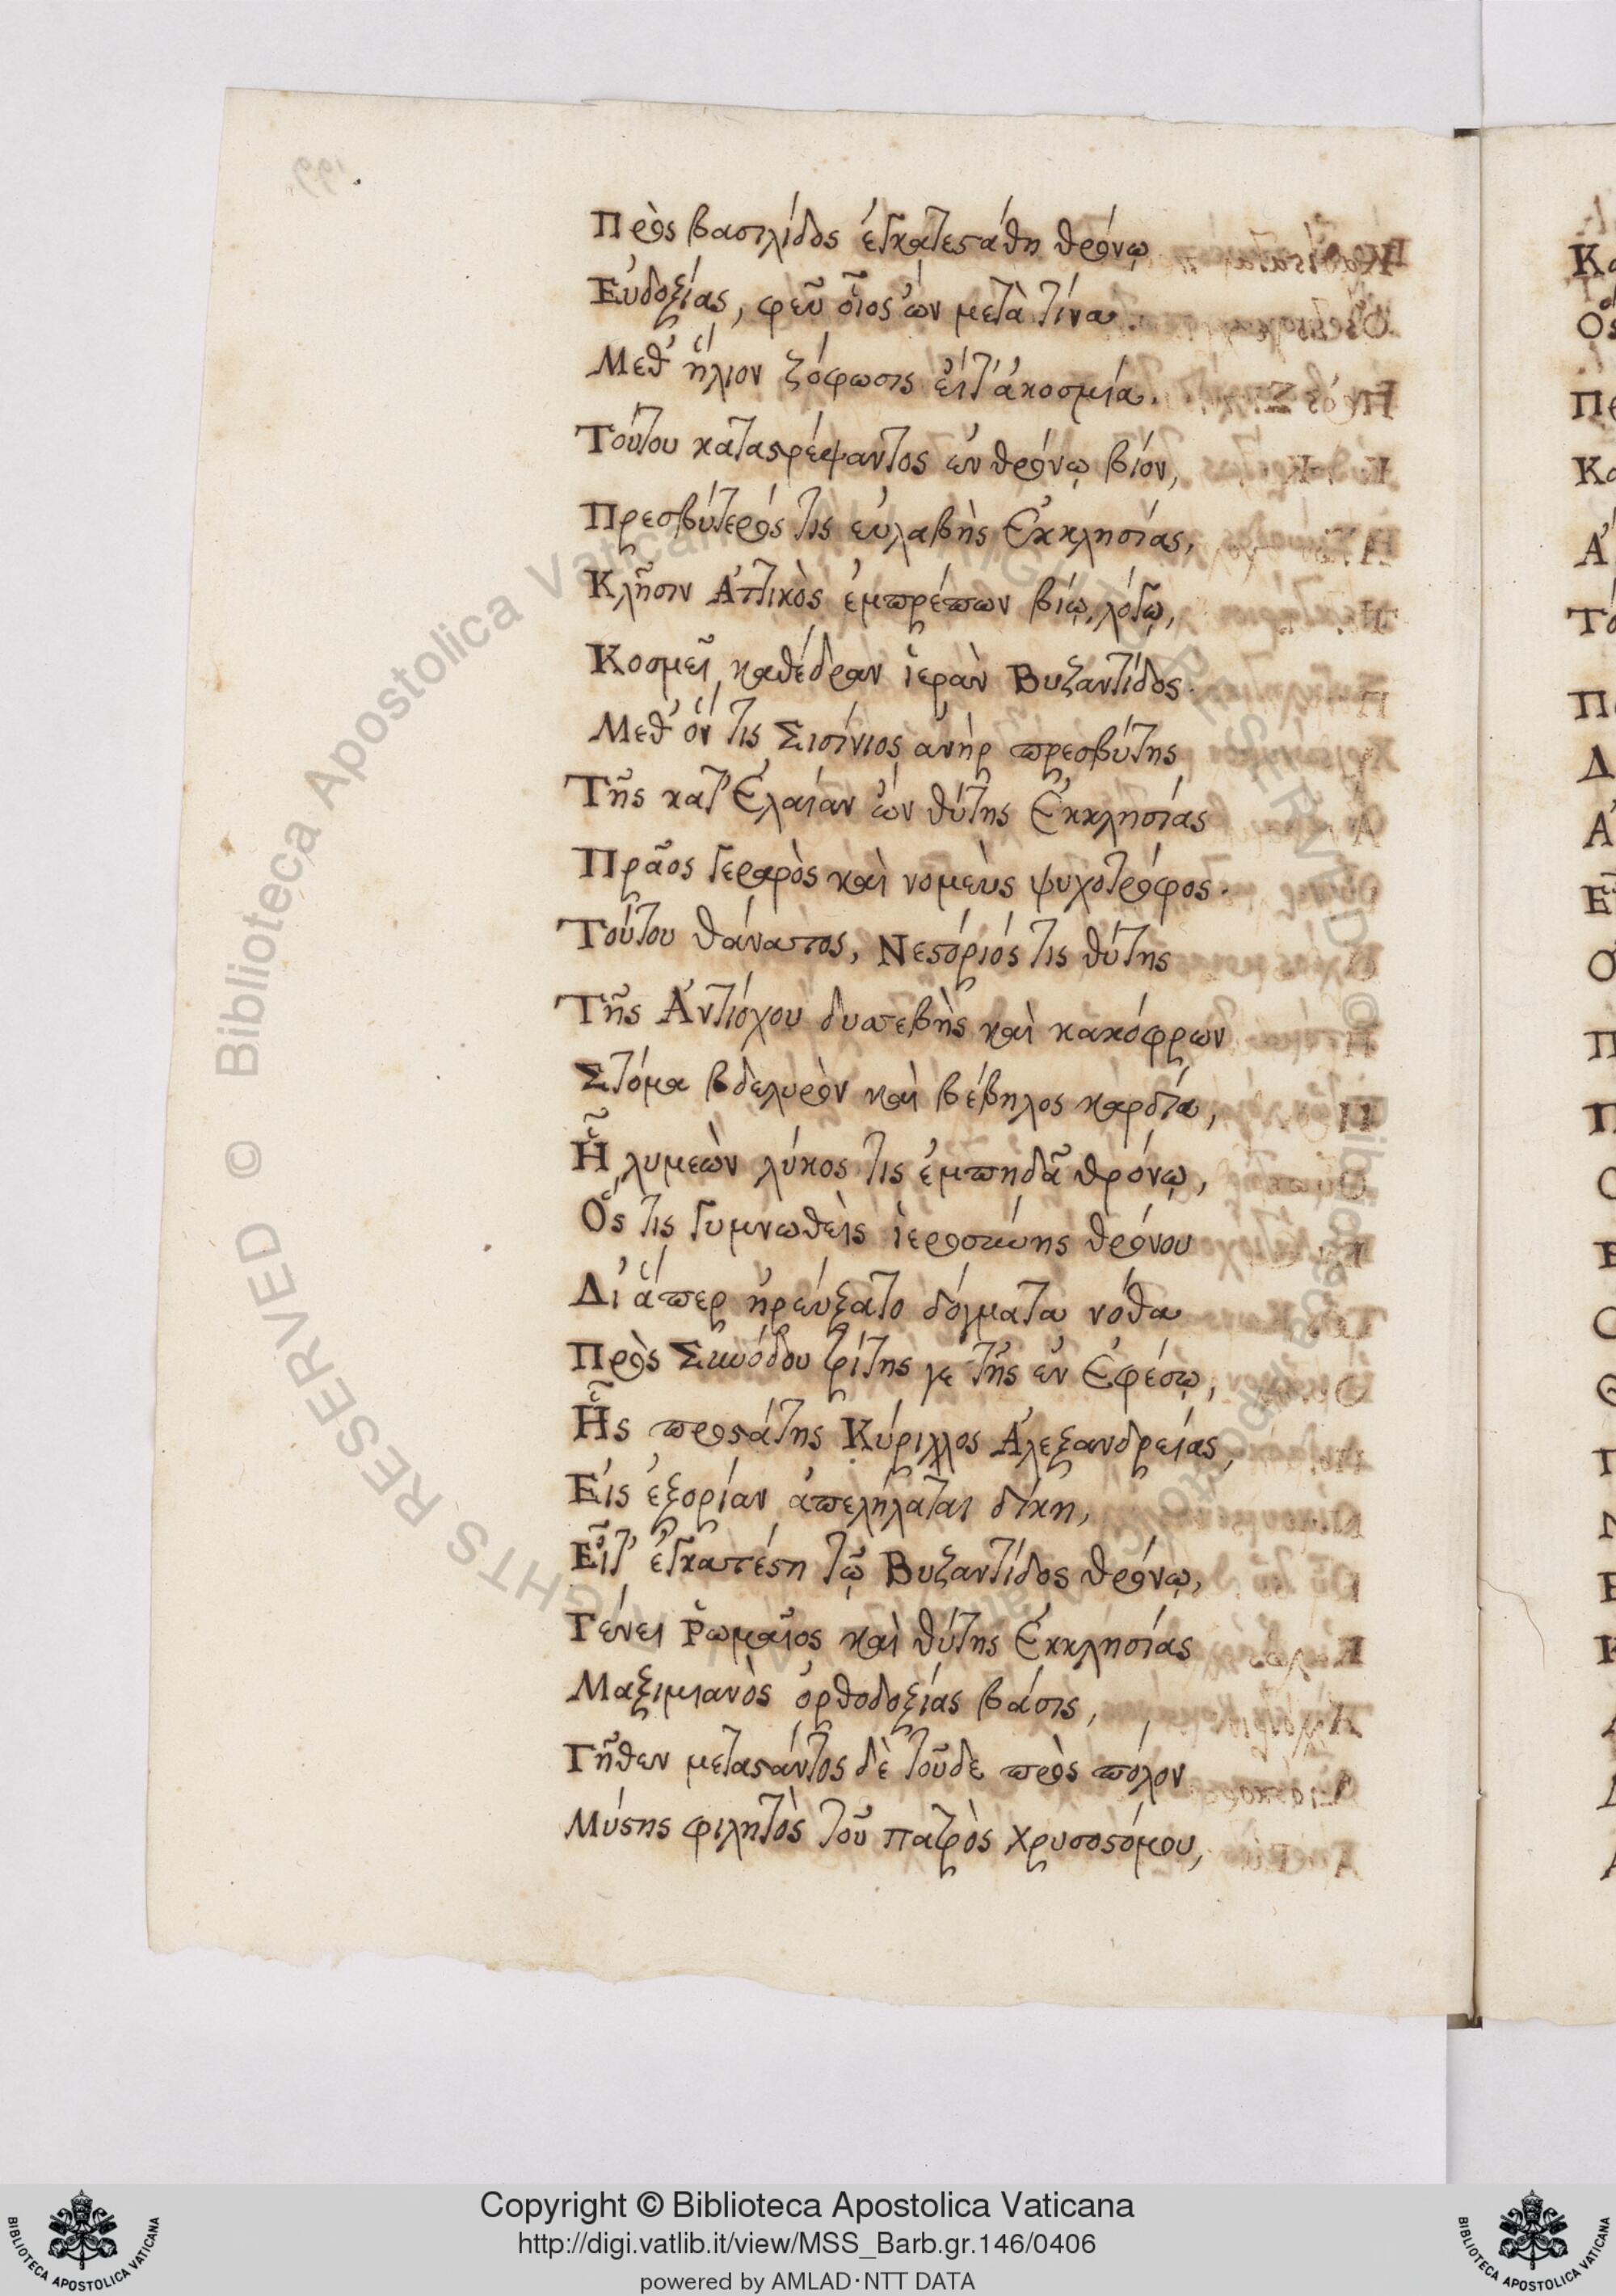 Πρὸς βασιλίδος ἐγκατεστάθη θρόνῳ
Εὐδοξίας, φεῦ οἷος ὢν μετὰ τίνα.
Μεθ' ἥλιον ζόφωσις εἶτ' ἀκοσμία.
Τούτου καταστρέψαντος ἐν θρόνῳ βίον,
Πρεσβύτερός τις εὐλαβὴς Ἐκκλησίας,
Κλῆσιν Ἀττικὸς ἐμπρέπων βίῳ, λόγῳ,
Κοσμεῖ καθέδραν ἱερὰν Βυζαντίδος.
Μεθ' ὅν τις Σισίνιος ἀνὴρ πρεσβύτης
Τῆς κατ' Ἐλαίαν ὢν θύτης Ἐκκλησίας
Πρᾶος γεραρὸς καὶ νομεὺς ψυχοτρόφος.
Τούτου θάνατος, Νεστόριός τις θύτης
Τῆς Ἀντιόχου δυσεβὴς καὶ κακόφρων
Στόμα βδελυρὸν καὶ βέβηλος καρδία,
Ἢ λυμεὼν λύκος τις ἐμπηδᾷ θρόνῳ,
Ὅς τις γυμνωθεὶς ἱεροσύνης θρόνου
Δι' ἅπερ ἠρεύξατο δόγματα νόθα
Πρὸς Συνόδου τρίτης γε τῆς ἐν Ἐφέσῳ,
Ἧς προστάτης Κύριλλος Ἀλεξανδρείας,
Εἰς ἐξορίαν ἀπελήλαται δίκῃ,
Εἶτ' ἐγκατέστη τῷ Βυζαντίδος θρόνῳ,
Γένει Ῥωμαῖος καὶ θύτης Ἐκκλησίας
Μαξιμιανὸς ὀρθοδοξίας βάσις,
Γῆθεν μεταστάντος δὲ τοῦδε πρὸς πόλον
Μύστης φιλητὸς τοῦ πατρὸς Χρυσοστόμου,
Copyright © Biblioteca Apostolica Vaticana
http://digi.vatlib.it/view/MSS_Barb.gr.146/0406
powered by AMLAD·NTT DATA